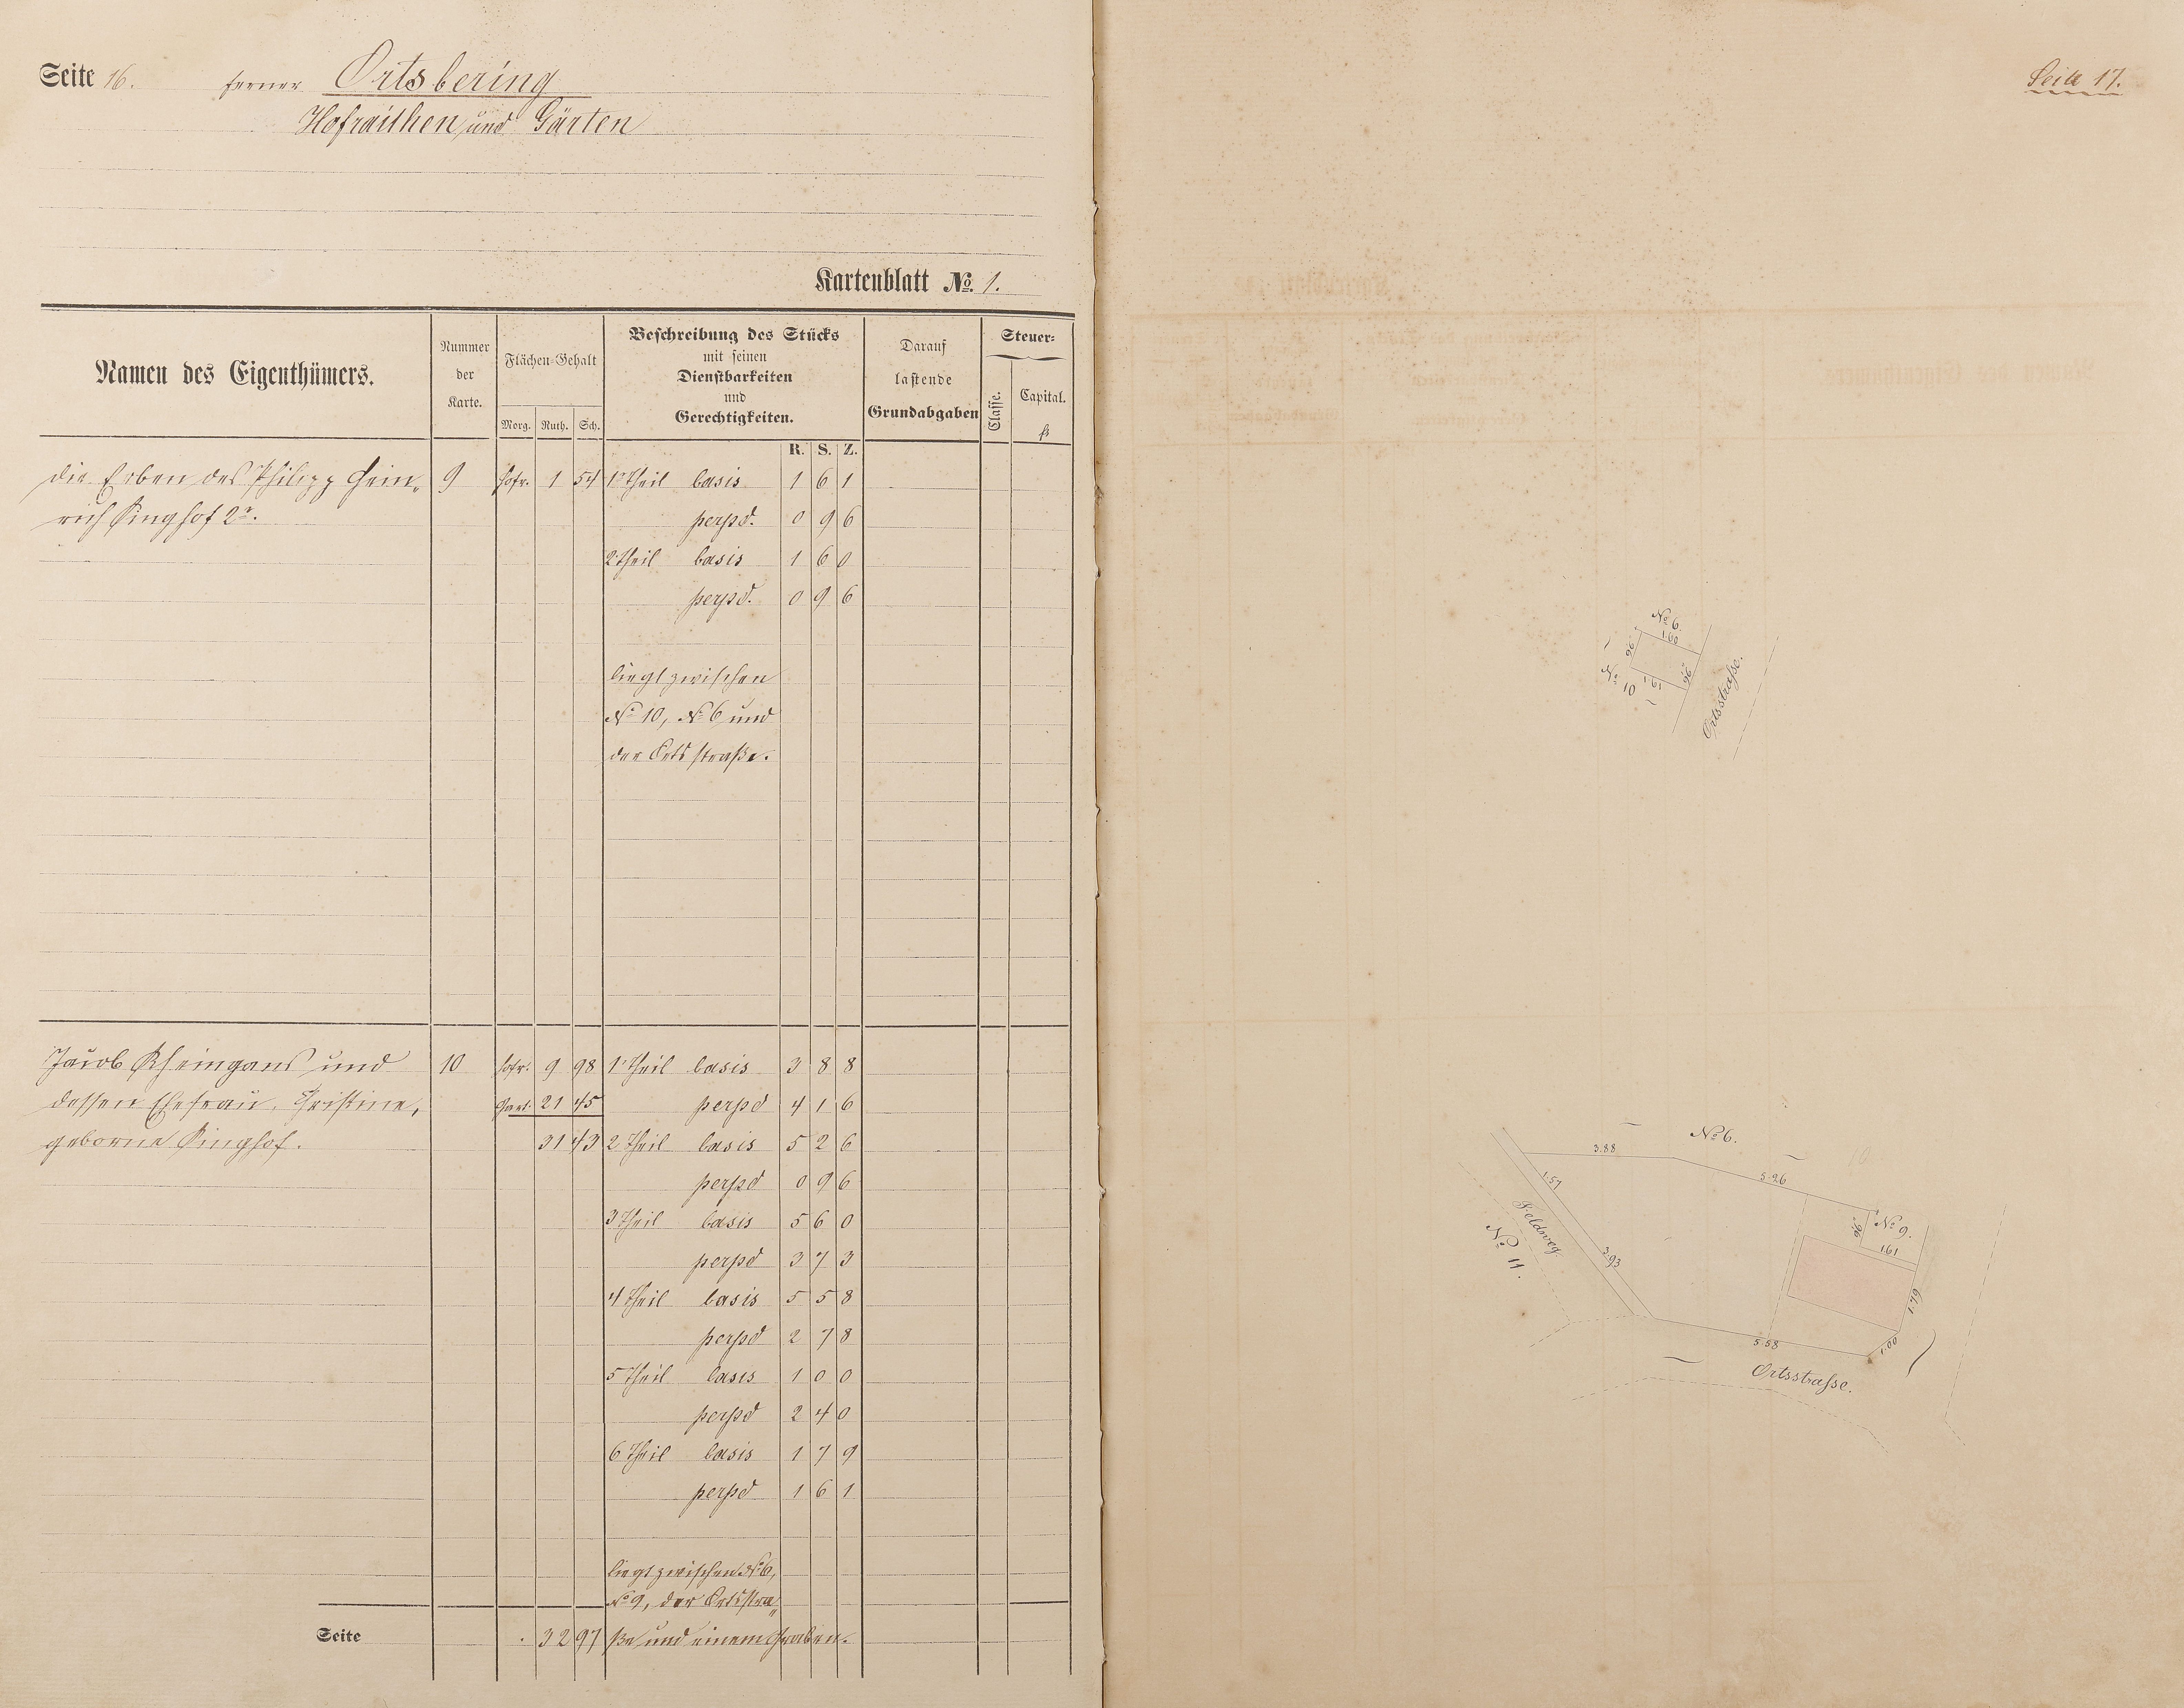 Seite 16. ferner Ortsbering
Hofraithen und Gärten
Kartenblatt No. 1.
Namen des Eigenthümers.
Nummer
der
Karte.
Flächen-Gehalt
Morg. Ruth. Sch.
Beschreibung des Stücks
mit seinen
Dienstbarkeiten
und
Gerechtigkeiten.
Darauf
lastende
Grundabgaben
Steuer-
Classe.
Capital.
R. S. Z.
die Erben des Philipp Hein„ 9 Hofr. 1 54 1r Theil basis 1 6 1
rich Kinghof 2r. perpd. 0 9 6
2 Theil basis 1 6 0
perpd. 0 9 6
liegt zwischen
No 10, No 6 und
der Ortsstraße.
Jacob Rheingans und 10 Hofr. 9 98 1r Theil basis 3 8 8
dessen Ehefrau, Christine, Gart. 21 45 perpd 4 1 6
geborne Kinghof. 31 43 2 Theil basis 5 2 6
perpd 0 9 6
3 Theil basis 5 6 0
perpd 3 7 3
4 Theil basis 5 5 8
perpd 2 7 8
5 Theil basis 1 0 0
perpd 2 4 0
6 Theil basis 1 7 9
perpd 1 6 1
liegt zwischen No 6,
No 9, der Ortsstra„
Seite . 32 97 ße und einem Graben.
Seite 17.
No 6.
1.60
96
No 10
1.61
96
Ortsstrasse.
No 6.
3.88
5.26
1.57
Feldweg
No 11.
3.93
96
No 9.
1.61
1.79
1.00
5.58
Ortsstrasse.